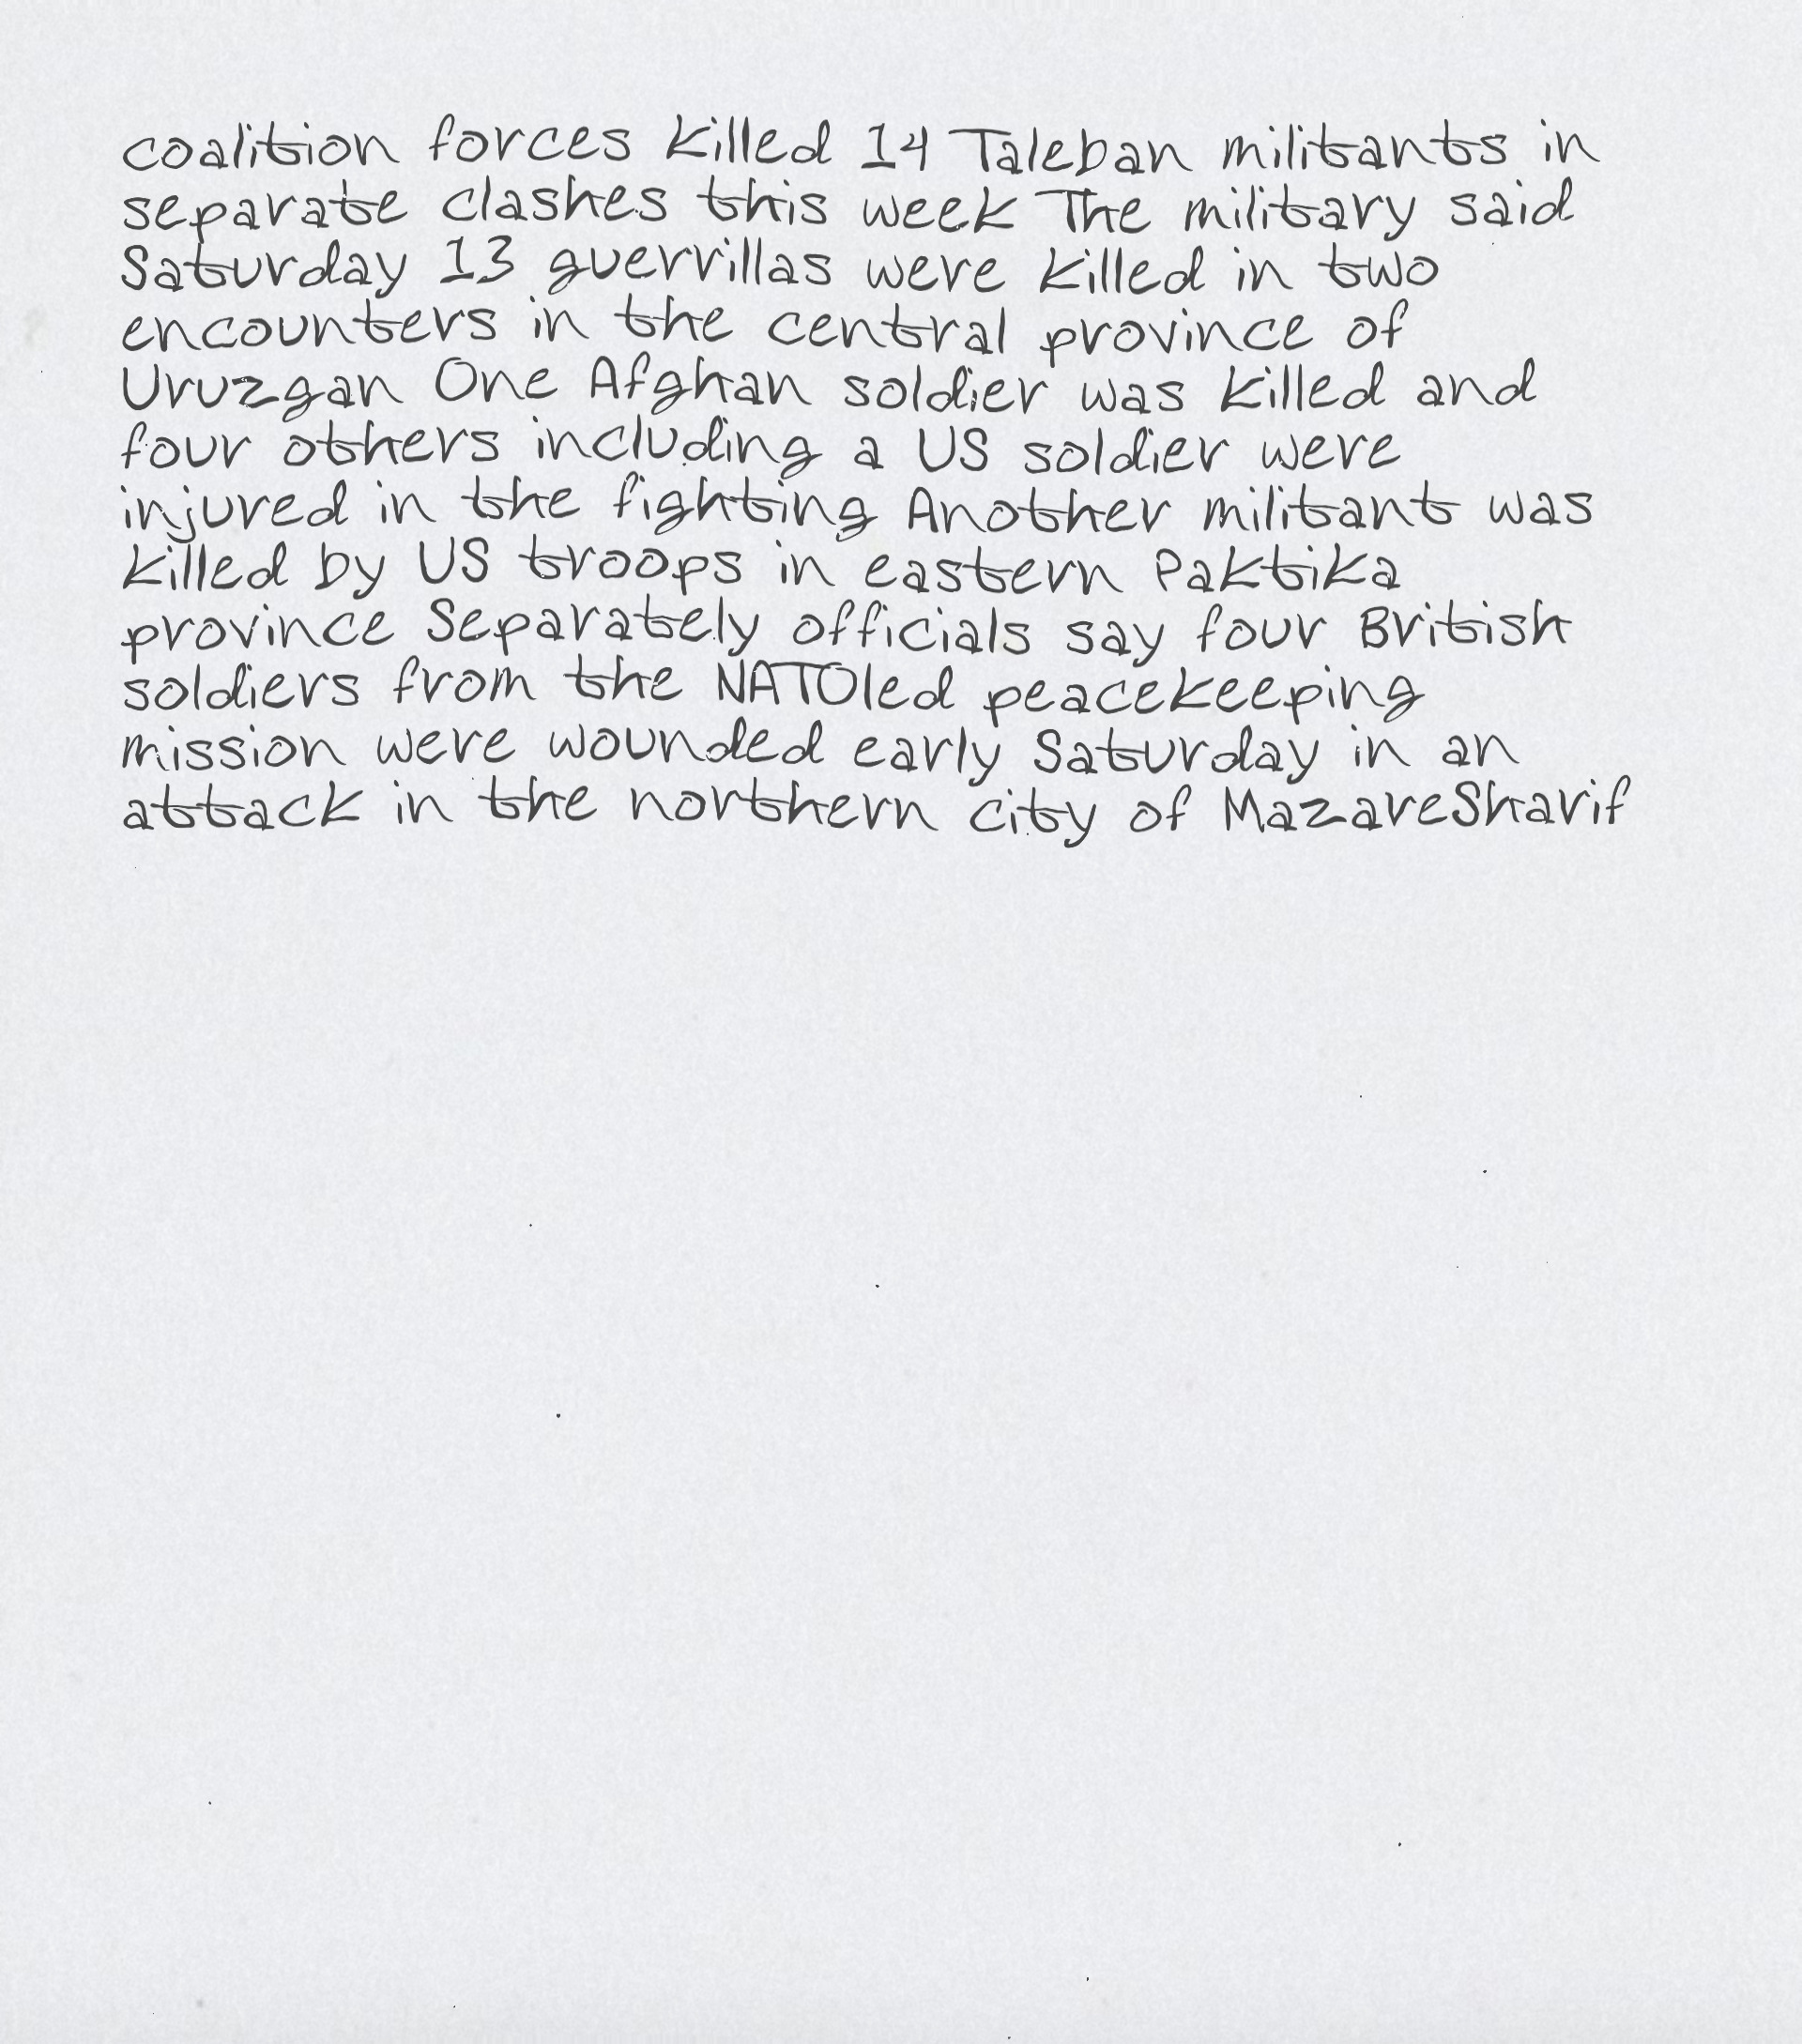 coalition forces killed 14 Taleban militants in
separate clashes this week The military said
Saturday 13 guerrillas were killed in two
encounters in the central province of
Uruzgan One Afghan soldier was killed and
four others including a US soldier were
injured in the fighting Another militant was
killed by US troops in eastern Paktika
province Separately officials say four British
soldiers from the NATOled peacekeeping
mission were wounded early Saturday in an
attack in the northern city of MazareSharif